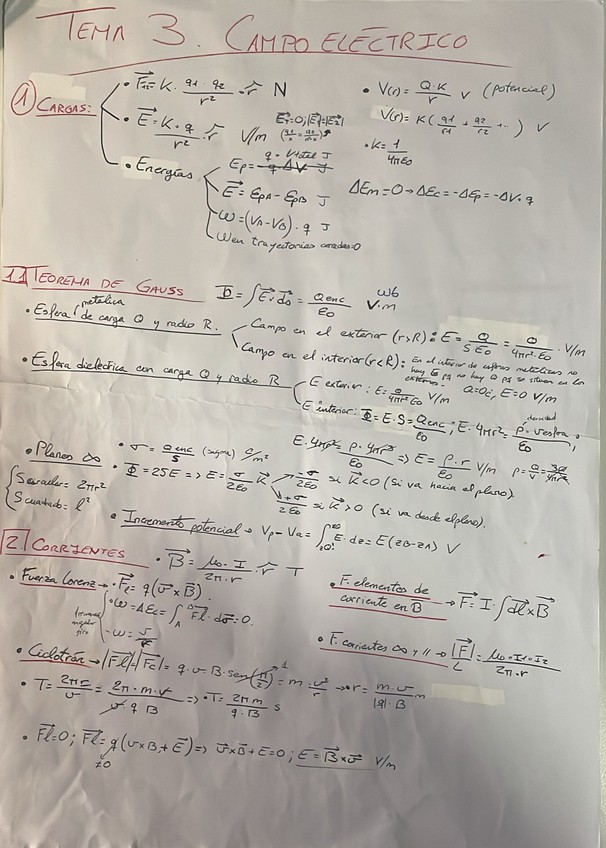 TEMA 3. CAMPO ELÉCTRICO
① CARGAS:
• F₁₂ = K · q1 · q2 / r² · r̂ N
• V(r) = Q·K / r V (potencial)
• E = K · q / r² · r̂ V/m
E_T = 0; |E₁| = |E₂|
V(r) = K (q1/r1 + q2/r2 + ...) V
• K = 1 / 4πε₀
• Energías
Ep = q · Vtotal J
E = EpA - EpB J
ΔEm = 0 → ΔEc = -ΔEp = -ΔV · q
W = (VA - VB) · q J
W en trayectorias cerradas = 0
1.1 TEOREMA DE GAUSS
Φ = ∫ E · ds = Qenc / ε₀ Wb V·m
• Esfera metálica de carga Q y radio R.
Campo en el exterior (r>R): E = Q / S ε₀ = Q / 4πr² · ε₀ V/m
Campo en el interior (r<R): En el interior de esferas metálicas no
hay E pq no hay Q pq se sitúan en los
externos. Q = 0C, E = 0 V/m
• Esfera dieléctrica con carga Q y radio R
E exterior: E = Q / 4πr² ε₀ V/m
E interior: Φ = E · S = Qenc / ε₀, E · 4πr² = ρ · Vesfera / ε₀;
densidad
ρ = Q/V
⇒ E = ρ · r / ε₀ V/m
• Planos ∞
• σ = Qenc / S (sigma) C/m²
Scircular = 2πr²
Scuadrado = l²
• Φ = 2SE => E = σ / 2ε₀ K
-σ / 2ε₀ si K<0 (Si va hacia el plano).
+σ / 2ε₀ si K>0 (si va desde el plano).
• Incremento potencial → Vp - Va = ∫ E · dz = E(zB - zA) V
2 CORRIENTES
• B = μ₀ · I / 2π · r · r̂ T
• Fuerza Lorenz → • Fl = q(v × B).
• W = ΔEc = ∫ Fl · ds = 0.
• F. elementos de
corriente en B → F = I · ∫ dl × B
• F. corrientes ∞ y // → |F| / L = μ₀ · I1 · I2 / 2π · r
• Ciclotrón → |Fl| = |Fc| = q · v · B · sen(π/2) = m · v²/r → r = m · v / |q| · B m
• T = 2πr / v = 2π · m · v / v q B => • T = 2πm / q · B s
• Fl = 0; Fl = q(v × B + E) => v × B + E = 0; E = B × v V/m
≠0